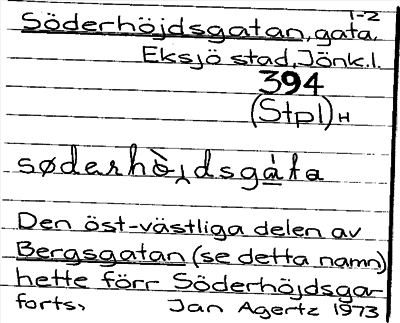 1-2
Söderhöjdsgatan, gata,
Eksjö stad, Jönk.l.
394
(Stpl) H
sødərhò̀ʝ‸dsgàta
Den öst-västliga delen av
Bergsgatan (se detta namn)
hette förr Söderhöjdsga-
forts, Jan Agertz 1973